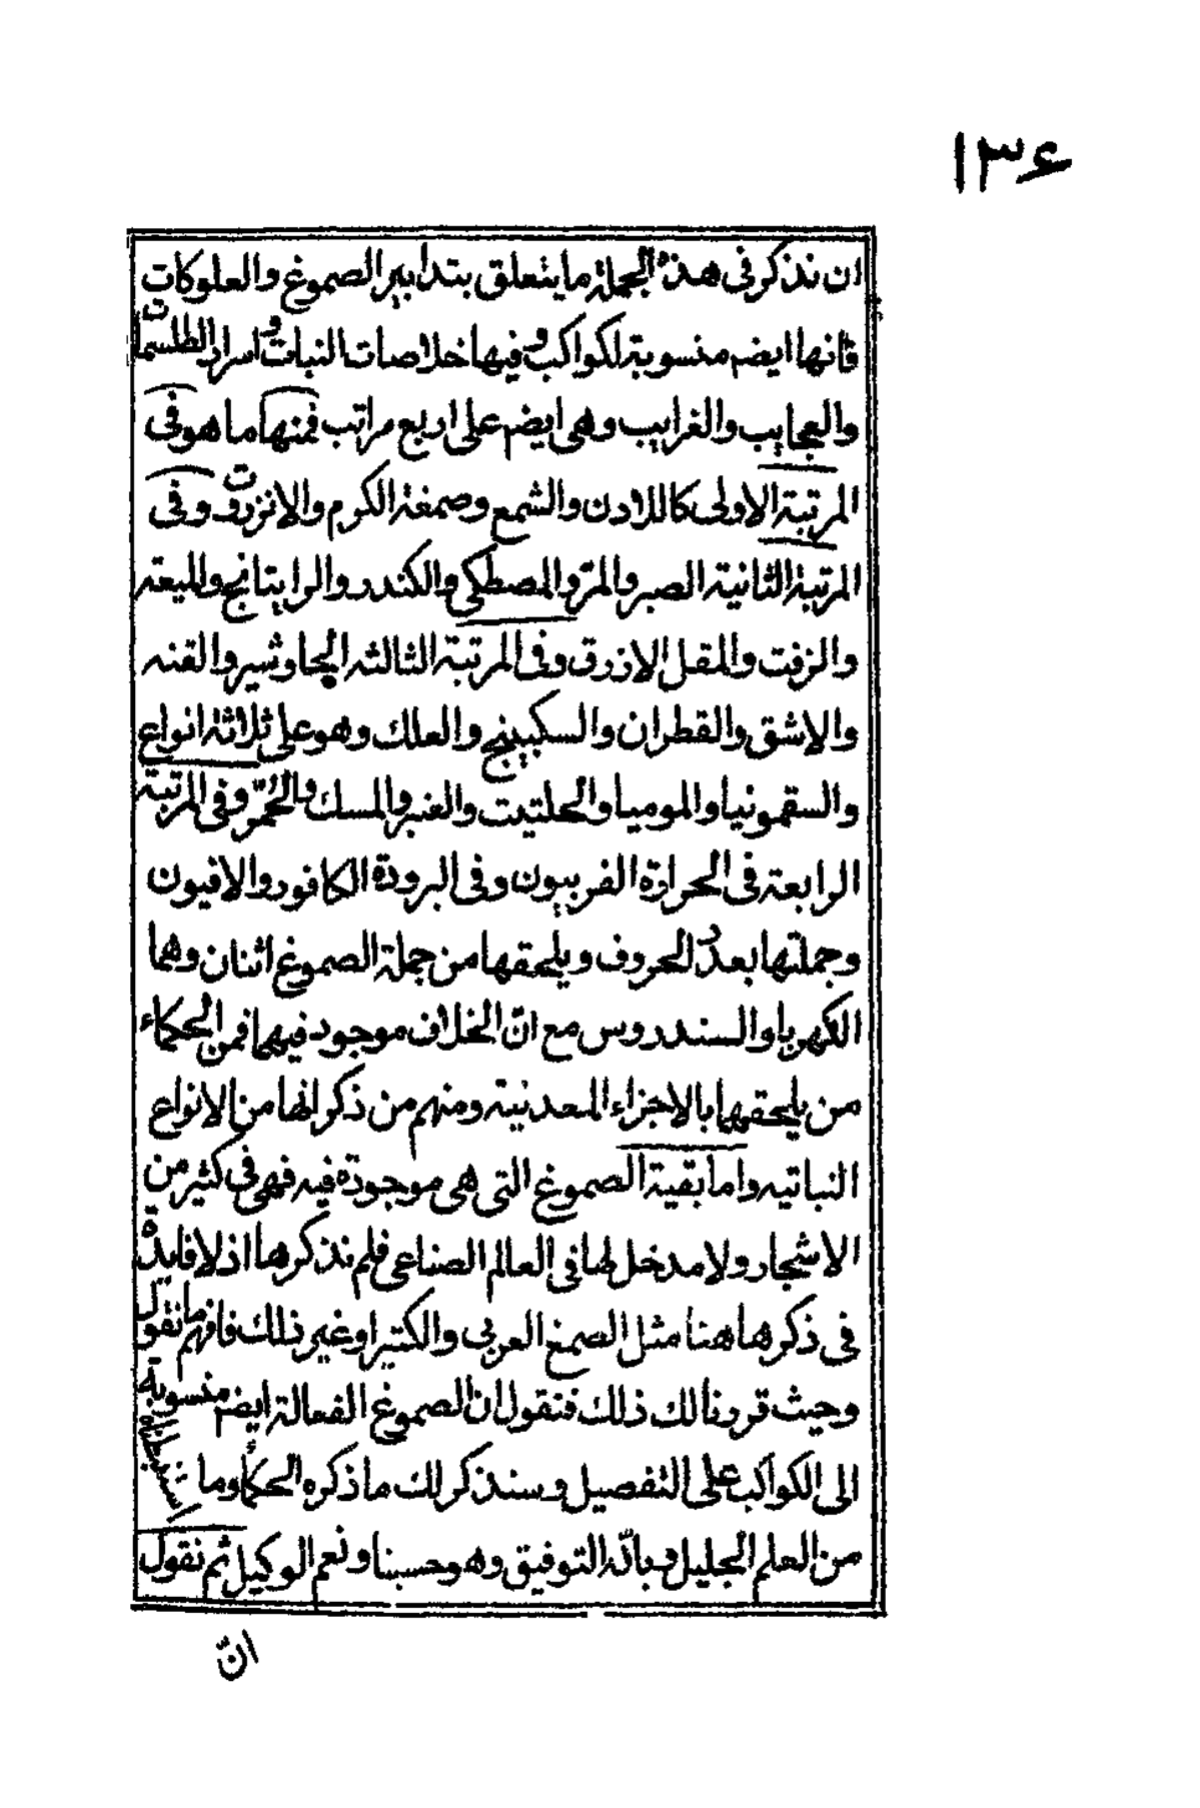 ١٣۶
ان نذكر فى هذه الجملة ما يتعلق بتدابير الصموغ والعلوكات
فانها ايضم منسوبة لكواكب وفيها خلاصات النبات واسرار الطلسمات
والعجايب والغرايب وهى ايضم على اربع مراتب فمنها ما هو فى
المرتبة الاولى كاللادن والشمع وصمغة الكرم والانزروت وفى
المرتبة الثانية الصبر والمرّ والمصطكى والكندر والراتيانج والميعة
والزفت والمقل الازرق وفى المرتبة الثالثه الجاوشير والقنه
والاشق والقطران والسكبينج والعلك وهو على ثلاثة انواع
والسقمونيا والموميا والحلتيت والعنبر والمسك والخُمّر وفى المرتبة
الرابعة فى الحرارة الفربيون وفى البرودة الكافور والافيون
وجملتها بعدد الحروف ويلحقها من جملة الصموغ اثنان وهما
الكهربا والسندروس مع انّ الخلاف موجود فيهما فمن الحكماء
من يلحقهما بالاجزاء المعدنية ومنهم من ذكر انها من الانواع
النباتيه واما بقية الصموغ التى هى موجودة فيه فهى فى كثير من
الاشجار ولا مدخل لها فى العالم الصناعى فلم نذكرها اذ لا فايدة
فى ذكرها هنا مثل الصمغ العربى والكتيرا وغير ذلك فافهم ما نقول
وحيث قررنا لك ذلك فنقول ان الصموغ الفعالة ايضم منسوبة
الى الكواكب على التفصيل وسنذكر لك ما ذكره الحكماء وما استنبطناه
من العلم الجليل وبالله التوفيق وهو حسبنا ونعم الوكيل ثم نقول
انّ